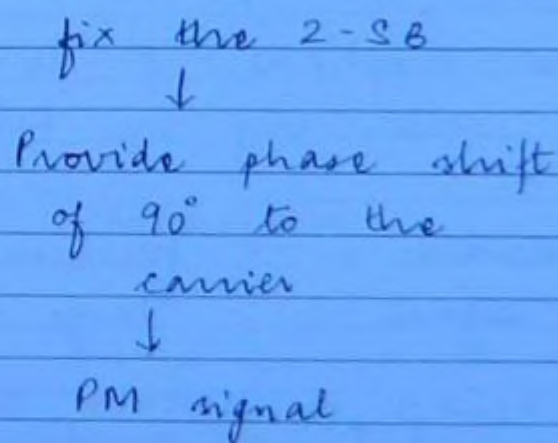 fix the 2-SB
↓
Provide phase shift
of 90° to the
carrier
↓
PM signal